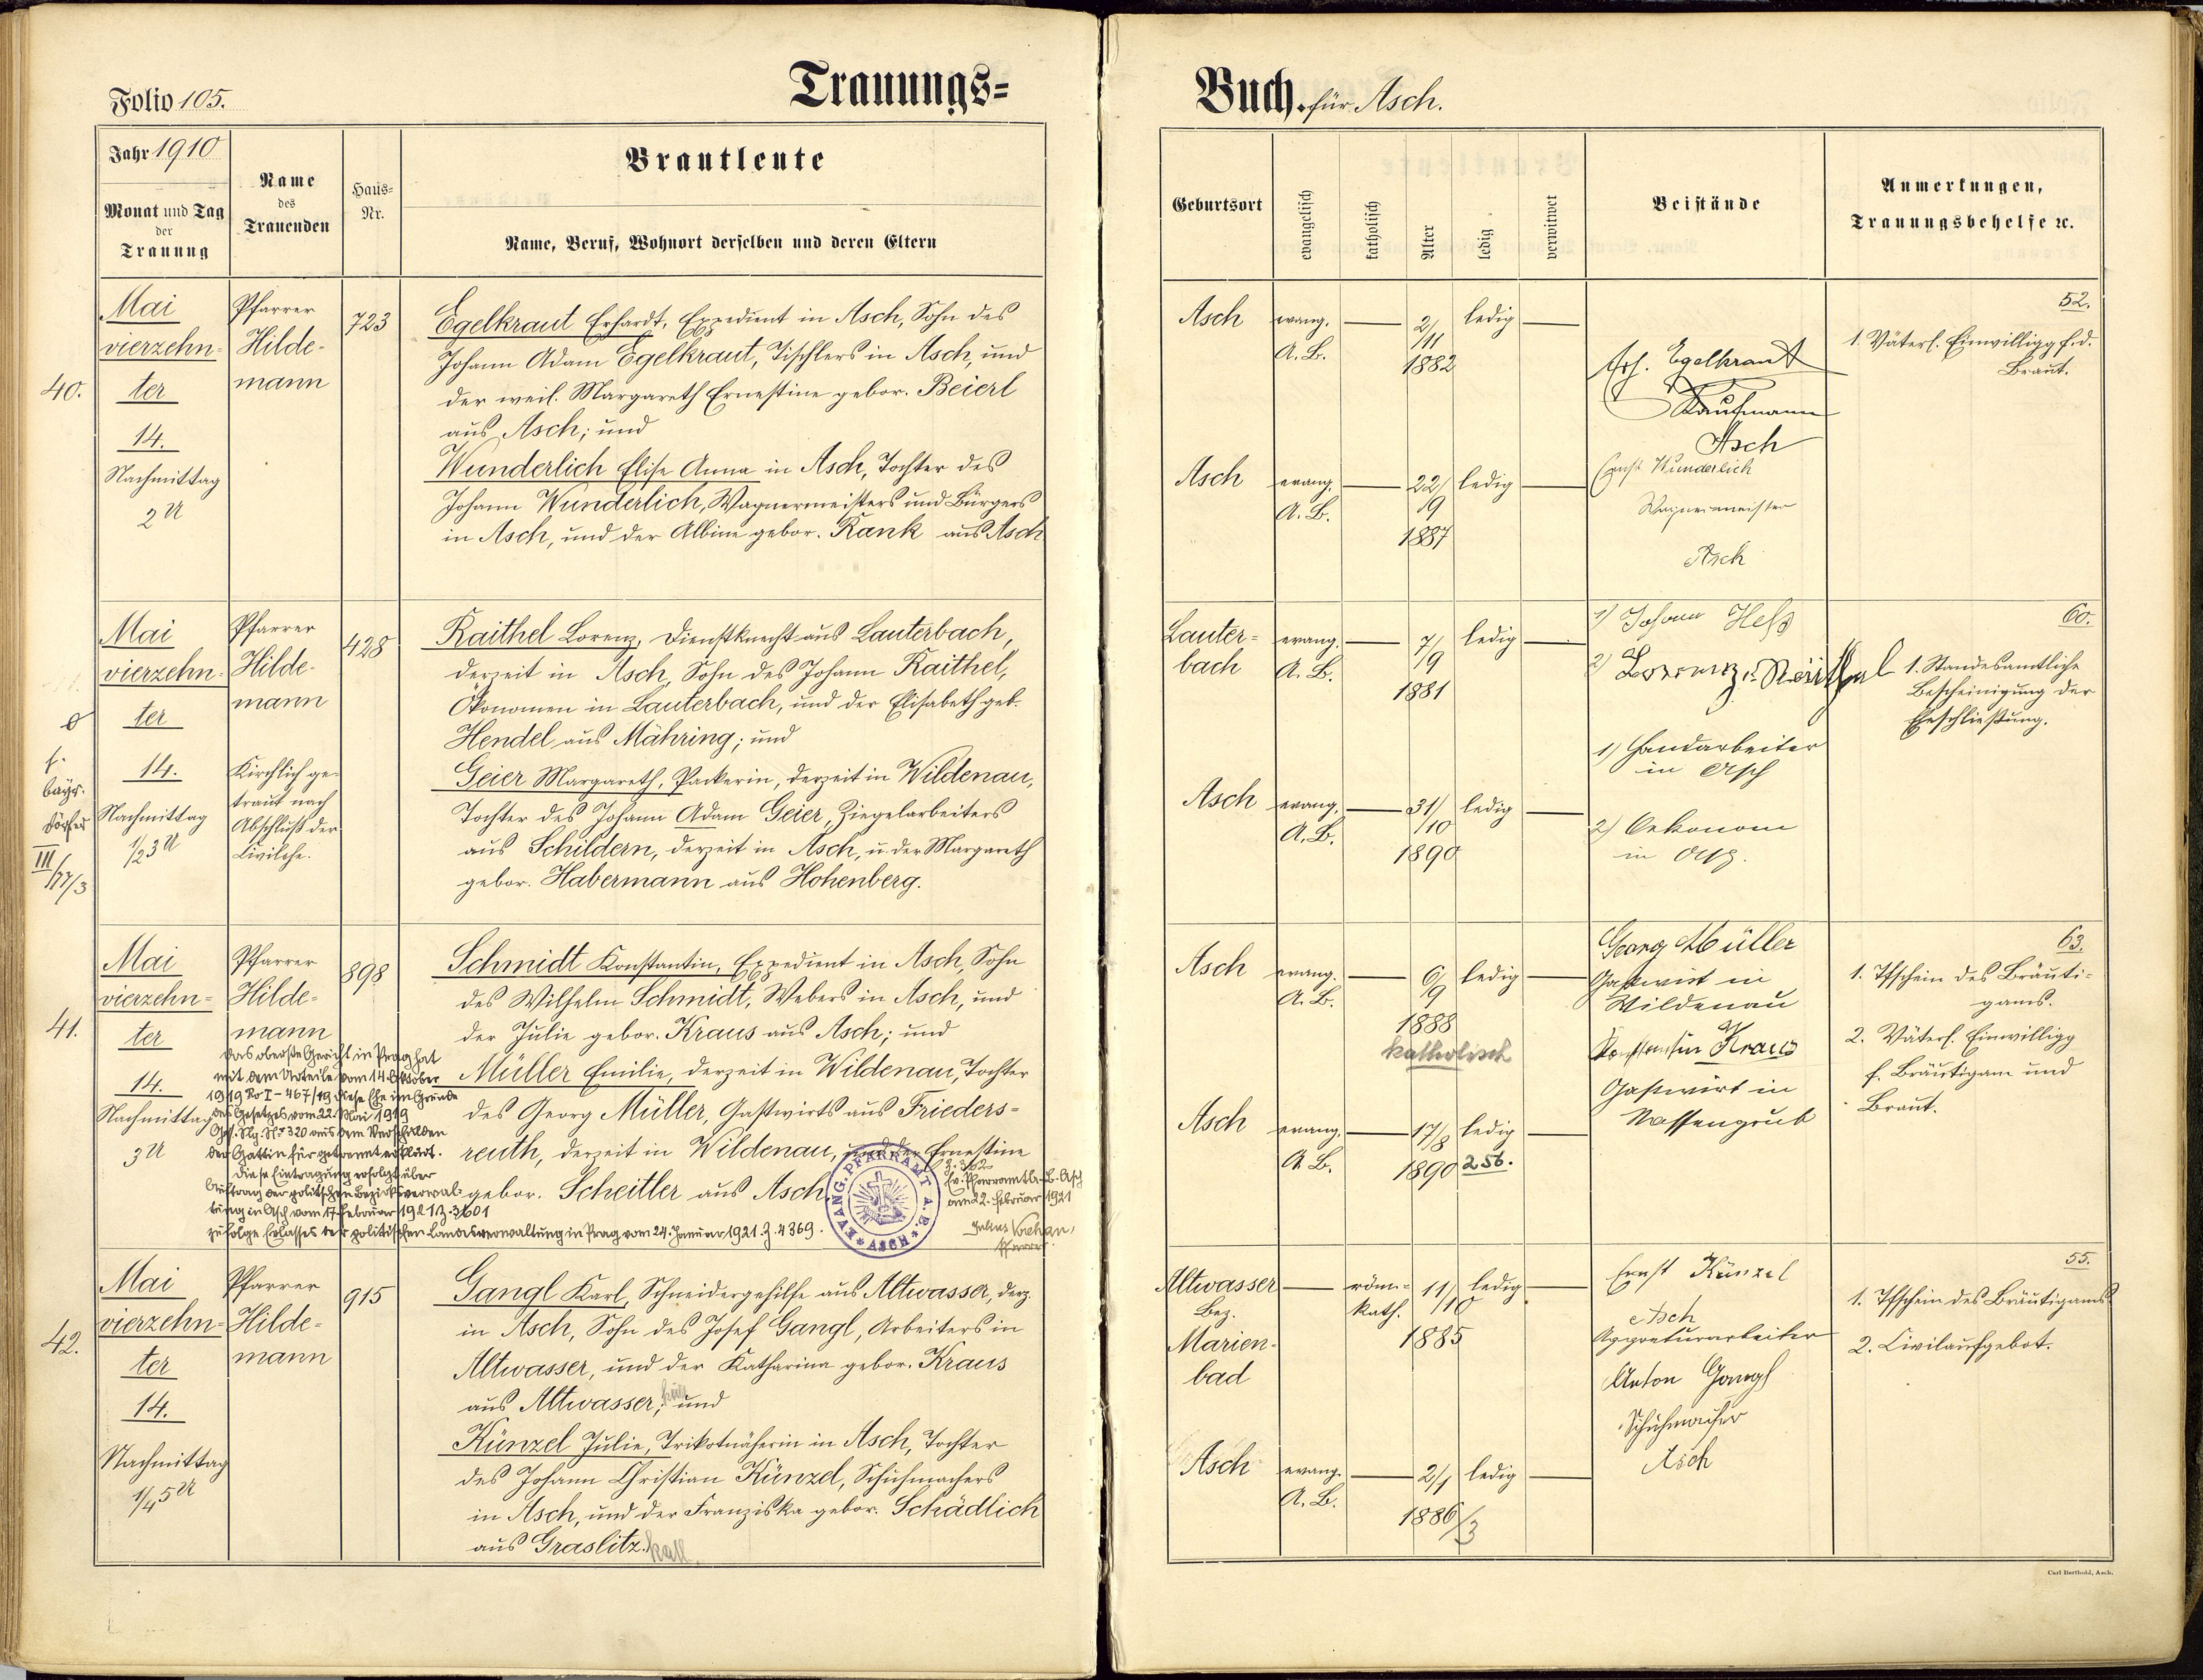 Folio 105.
Trauungs=
Jahr 1910
Monat und Tag
der
Trauung
Name
des
Trauenden
Haus=
Nr.
Brautleute
Name, Beruf, Wohnort derselben und deren Eltern
40.
Mai
vierzehn-
ter
14.
Nachmittag
2 U
Pfarrer
Hilde-
mann
723
Egelkraut Erhardt, Expedient in Asch, Sohn des
Johann Adam Egelkraut, Tischlers in Asch, und
der weil. Margareth Ernestine gebor. Beierl
aus Asch; und
Wunderlich Elise Anna in Asch, Tochter des
Johann Wunderlich, Wagnermeisters und Bürgers
in Asch, und der Albine gebor. Rank aus Asch
f.
bayr.
III/77/3
Mai
vierzehn-
ter
14.
Nachmittag
1/2 3 U
Pfarrer
Hilde-
mann
Kirchlich ge-
traut nach
Abschluß der
Civilehe.
428
Raithel Lorenz, Dienstknecht aus Lauterbach,
derzeit in Asch, Sohn des Johann Raithel,
Ökonomen in Lauterbach, und der Elisabeth geb.
Hendel aus Mähring; und
Geier Margareth, Packerin, derzeit in Wildenau,
Tochter des Johann Adam Geier, Ziegelarbeiters
aus Schildern, derzeit in Asch, u. der Margareth
gebor. Habermann aus Hohenberg.
41.
Mai
vierzehn=
ter
14.
Nachmittag
3 U
Pfarrer
Hilde=
mann
898
Schmidt Konstantin, Expedient in Asch, Sohn
des Wilhelm Schmidt, Webers in Asch, und
der Julie gebor. Kraus aus Asch; und
Müller Emilie, derzeit in Wildenau, Tochter
des Georg Müller, Gastwirts aus Frieders=
reuth, derzeit in Wildenau, und der Ernestine
gebor. Scheitler aus Asch
Das oberste Gericht in Prag hat
mit dem Urteile vom 14. Oktober
1919 Ro I - 467/19 diese Ehe im Grunde
des Gesetzes vom 22. Mai 1919
Ges. Slg. Nr. 320 aus dem Verschulden
der Gattin für getrennt erklärt.
Diese Eintragung erfolgt über
Auftrag der politischen Bezirksverwal-
tung in Asch vom 17. Februar 1921 Z. 3601
zufolge Erlasses der politischen Landesverwaltung in Prag vom 24. Januar 1921. Z. 4369.
EVANG. PFARRAMT A.B. ASCH
Z. 362
Ev. Pfarramt A. B. Asch
am 22. Februar 1921
Pfarrer
42.
Mai
vierzehn=
ter
14.
Nachmittag
1/4 5 U
Pfarrer
Hilde=
mann
915
Gangl Karl, Schneidergehilfe aus Altwasser, derz.
in Asch, Sohn des Josef Gangl, Arbeiters in
Altwasser, und der Katharina gebor. Kraus
aus Altwasser; und
Künzel Julie, Trikotnäherin in Asch, Tochter
des Johann Christian Künzel, Schuhmachers
in Asch, und der Franziska gebor. Schädlich
aus Graslitz. kath.
Buch. für Asch.
Geburtsort
evangelisch
katholisch
Alter
ledig
verwitwet
Beistände
Anmerkungen,
Trauungsbehelfe ꝛc.
Asch
evang.
A. B.
2/11
1882
ledig
Erh. Egelkraut
Kaufmann
Asch
52.
1. Väterl. Einwilligg f. d.
Braut.
Asch
evang.
A. B.
22/9
1887
ledig
Ernst Wunderlich
Wagnermeister
Asch
Lauter=
bach
evang.
A. B.
7/9
1881
ledig
1) Johann Heß
2) Lorenz Raithel
1) Handarbeiter
in Asch
2) Oekonom
in Asch.
60.
1. Standesamtliche
Bescheinigung der
Eheschließung.
Asch
evang.
A. B.
31/10
1890
ledig
Asch
evang.
A. B.
6/9
1888
katholisch
ledig
Georg Müller
Gastwirt in
Wildenau
Konstantin Kraus
Gastwirt in
Nassengrub
63.
1. Tfschein des Bräuti=
gams.
2. Väterl. Einwilligg
f. Bräutigam und
Braut.
Asch
evang.
A. B.
17/8
1890
ledig
256.
Altwasser
Bez.
Marien-
bad
röm=
kath.
11/10
1885
ledig
Ernst Künzel
Asch
Appreturarbeiter
Anton Gangl
Schuhmacher
Asch
55.
1. Tfschein des Bräutigams.
2. Civilaufgebot.
Asch
evang.
A. B.
2/1
1886/3
ledig
Carl Berthold, Asch.